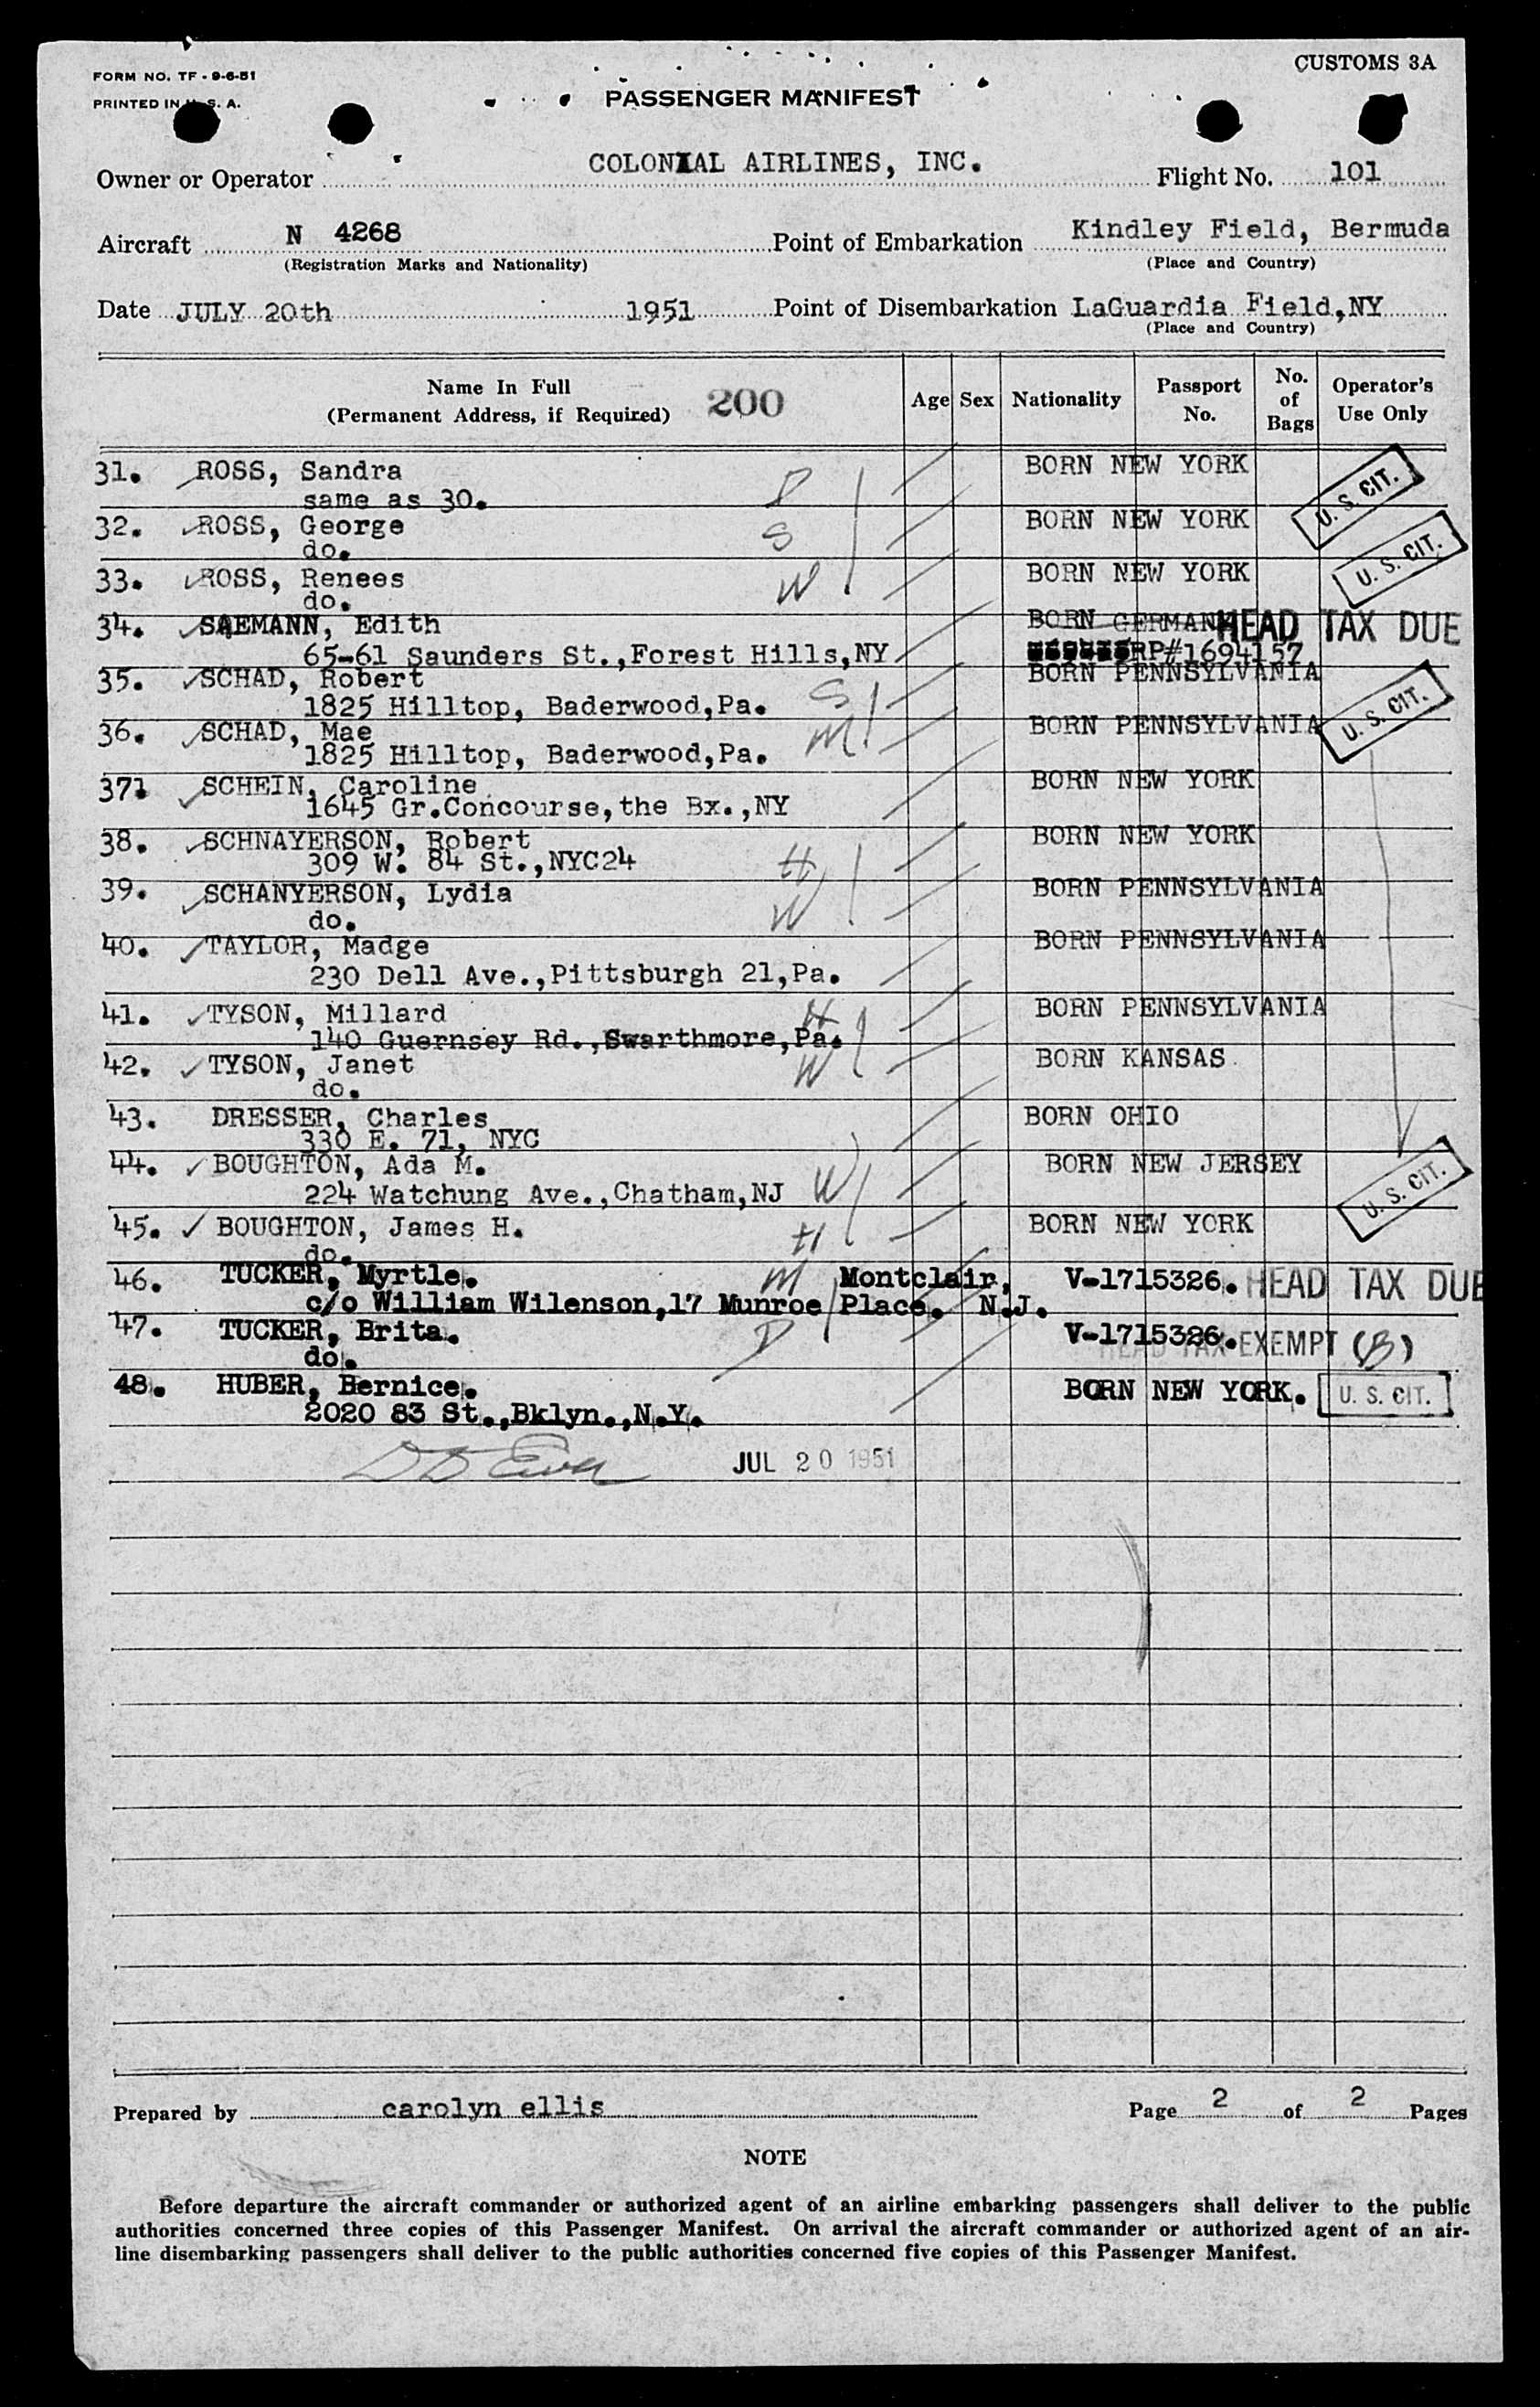 FORM NO. TF - 9-6-51
PRINTED IN U. S. A.
CUSTOMS 3A
PASSENGER MANIFEST
Owner or Operator COLONIAL AIRLINES, INC. Flight No. 101
Aircraft N 4268 Point of Embarkation Kindley Field, Bermuda
(Registration Marks and Nationality) (Place and Country)
Date JULY 20th 1951 Point of Disembarkation LaGuardia Field,NY
(Place and Country)
Name In Full
(Permanent Address, if Required) 200
Age Sex Nationality Passport No. No. of Bags Operator's Use Only
31. ROSS, Sandra D BORN NEW YORK U. S. CIT.
same as 30.
32. ROSS, George S BORN NEW YORK
do.
33. ROSS, Renees W BORN NEW YORK U. S. CIT.
do.
34. SAEMANN, Edith BORN GERMANY HEAD TAX DUE
65-61 Saunders St.,Forest Hills,NY RP#1694157
35. SCHAD, Robert S BORN PENNSYLVANIA
1825 Hilltop, Baderwood,Pa.
36. SCHAD, Mae M BORN PENNSYLVANIA U. S. CIT.
1825 Hilltop, Baderwood,Pa.
371 SCHEIN, Caroline BORN NEW YORK
1645 Gr.Concourse,the Bx.,NY
38. SCHNAYERSON, Robert H BORN NEW YORK
309 W. 84 St.,NYC24
39. SCHANYERSON, Lydia W BORN PENNSYLVANIA
do.
40. TAYLOR, Madge BORN PENNSYLVANIA
230 Dell Ave.,Pittsburgh 21,Pa.
41. TYSON, Millard H BORN PENNSYLVANIA
140 Guernsey Rd.,Swarthmore,Pa.
42. TYSON, Janet W BORN KANSAS
do.
43. DRESSER, Charles BORN OHIO
330 E. 71, NYC
44. BOUGHTON, Ada M. W BORN NEW JERSEY U. S. CIT.
224 Watchung Ave.,Chatham,NJ
45. BOUGHTON, James H. H BORN NEW YORK
do.
46. TUCKER, Myrtle. M Montclair, V-1715326. HEAD TAX DUE
c/o William Wilenson,17 Munroe Place. N.J.
47. TUCKER, Brita. D V-1715326. HEAD TAX EXEMPT (B)
do.
48. HUBER, Bernice. BORN NEW YORK. U. S. CIT.
2020 83 St.,Bklyn.,N.Y.
JUL 20 1951
Prepared by carolyn ellis Page 2 of 2 Pages
NOTE
Before departure the aircraft commander or authorized agent of an airline embarking passengers shall deliver to the public
authorities concerned three copies of this Passenger Manifest. On arrival the aircraft commander or authorized agent of an air-
line disembarking passengers shall deliver to the public authorities concerned five copies of this Passenger Manifest.